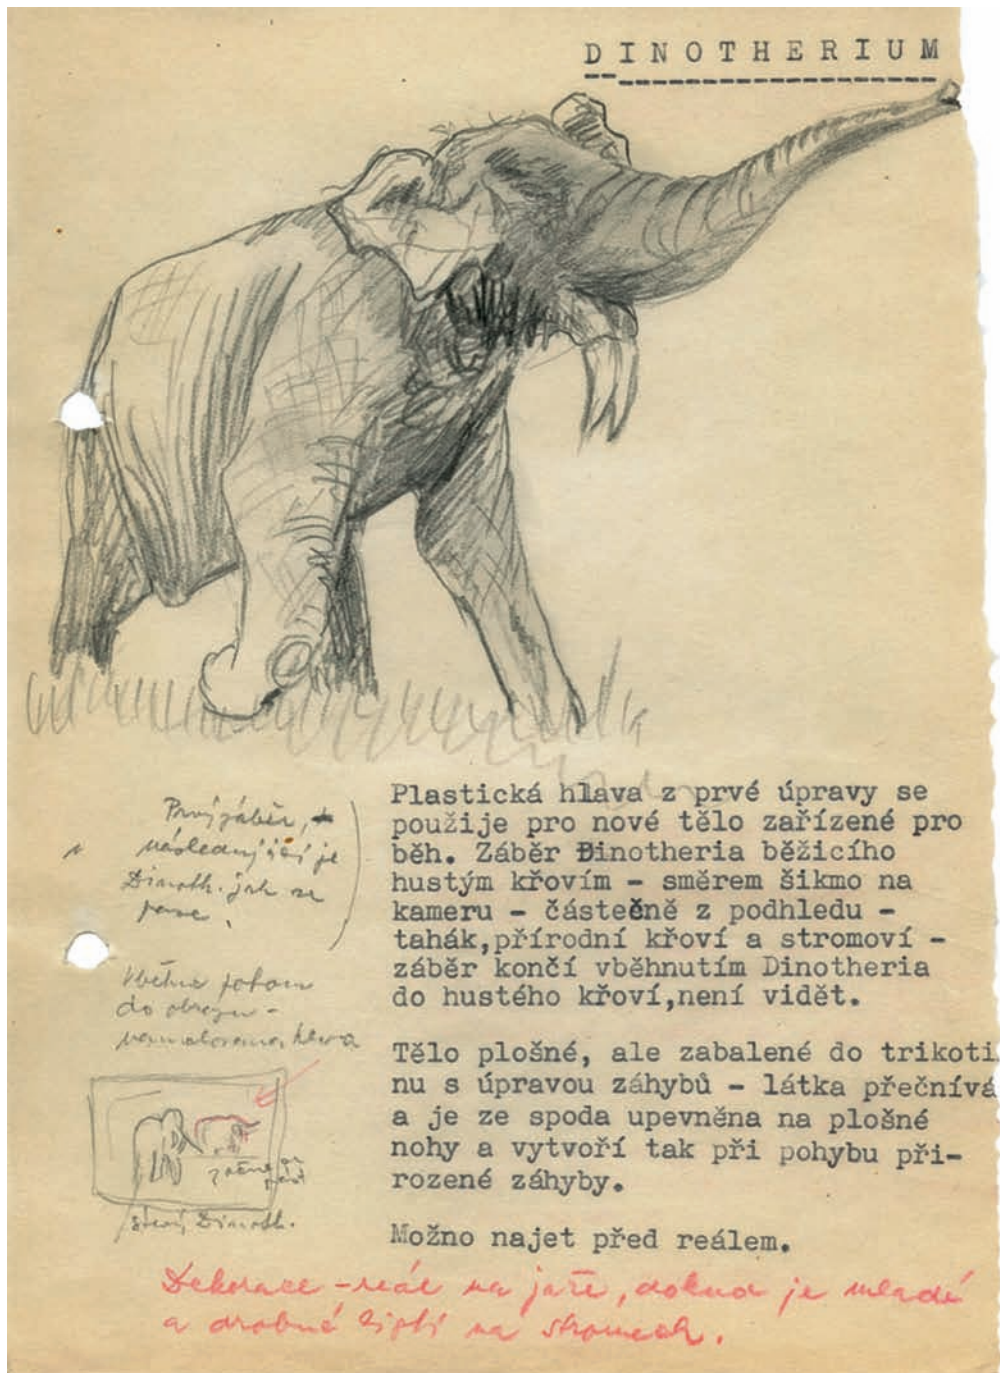 DINOTHERIUM
Plastická hlava z prvé úpravy se
použije pro nové tělo zařízené pro
běh. Záběr Dinotheria běžicího
hustým křovím - směrem šikmo na
kameru - částečně z podhledu -
tahák,přírodní křoví a stromoví -
záběr končí vběhnutím Dinotheria
do hustého křoví,není vidět.
Tělo plošné, ale zabalené do trikoti
nu s úpravou záhybů - látka přečnívá
a je ze spoda upevněna na plošné
nohy a vytvoří tak při pohybu při-
rozené záhyby.
Možno najet před reálem.
Prvý záběr,
následující je
Dinoth. jak se
pase.
Vběhne potom
do obrazu -
namalovaná hlava
Dinoth.
Dekorace - reál na jaře, dokud je mladé
a drobné listí na stromech.